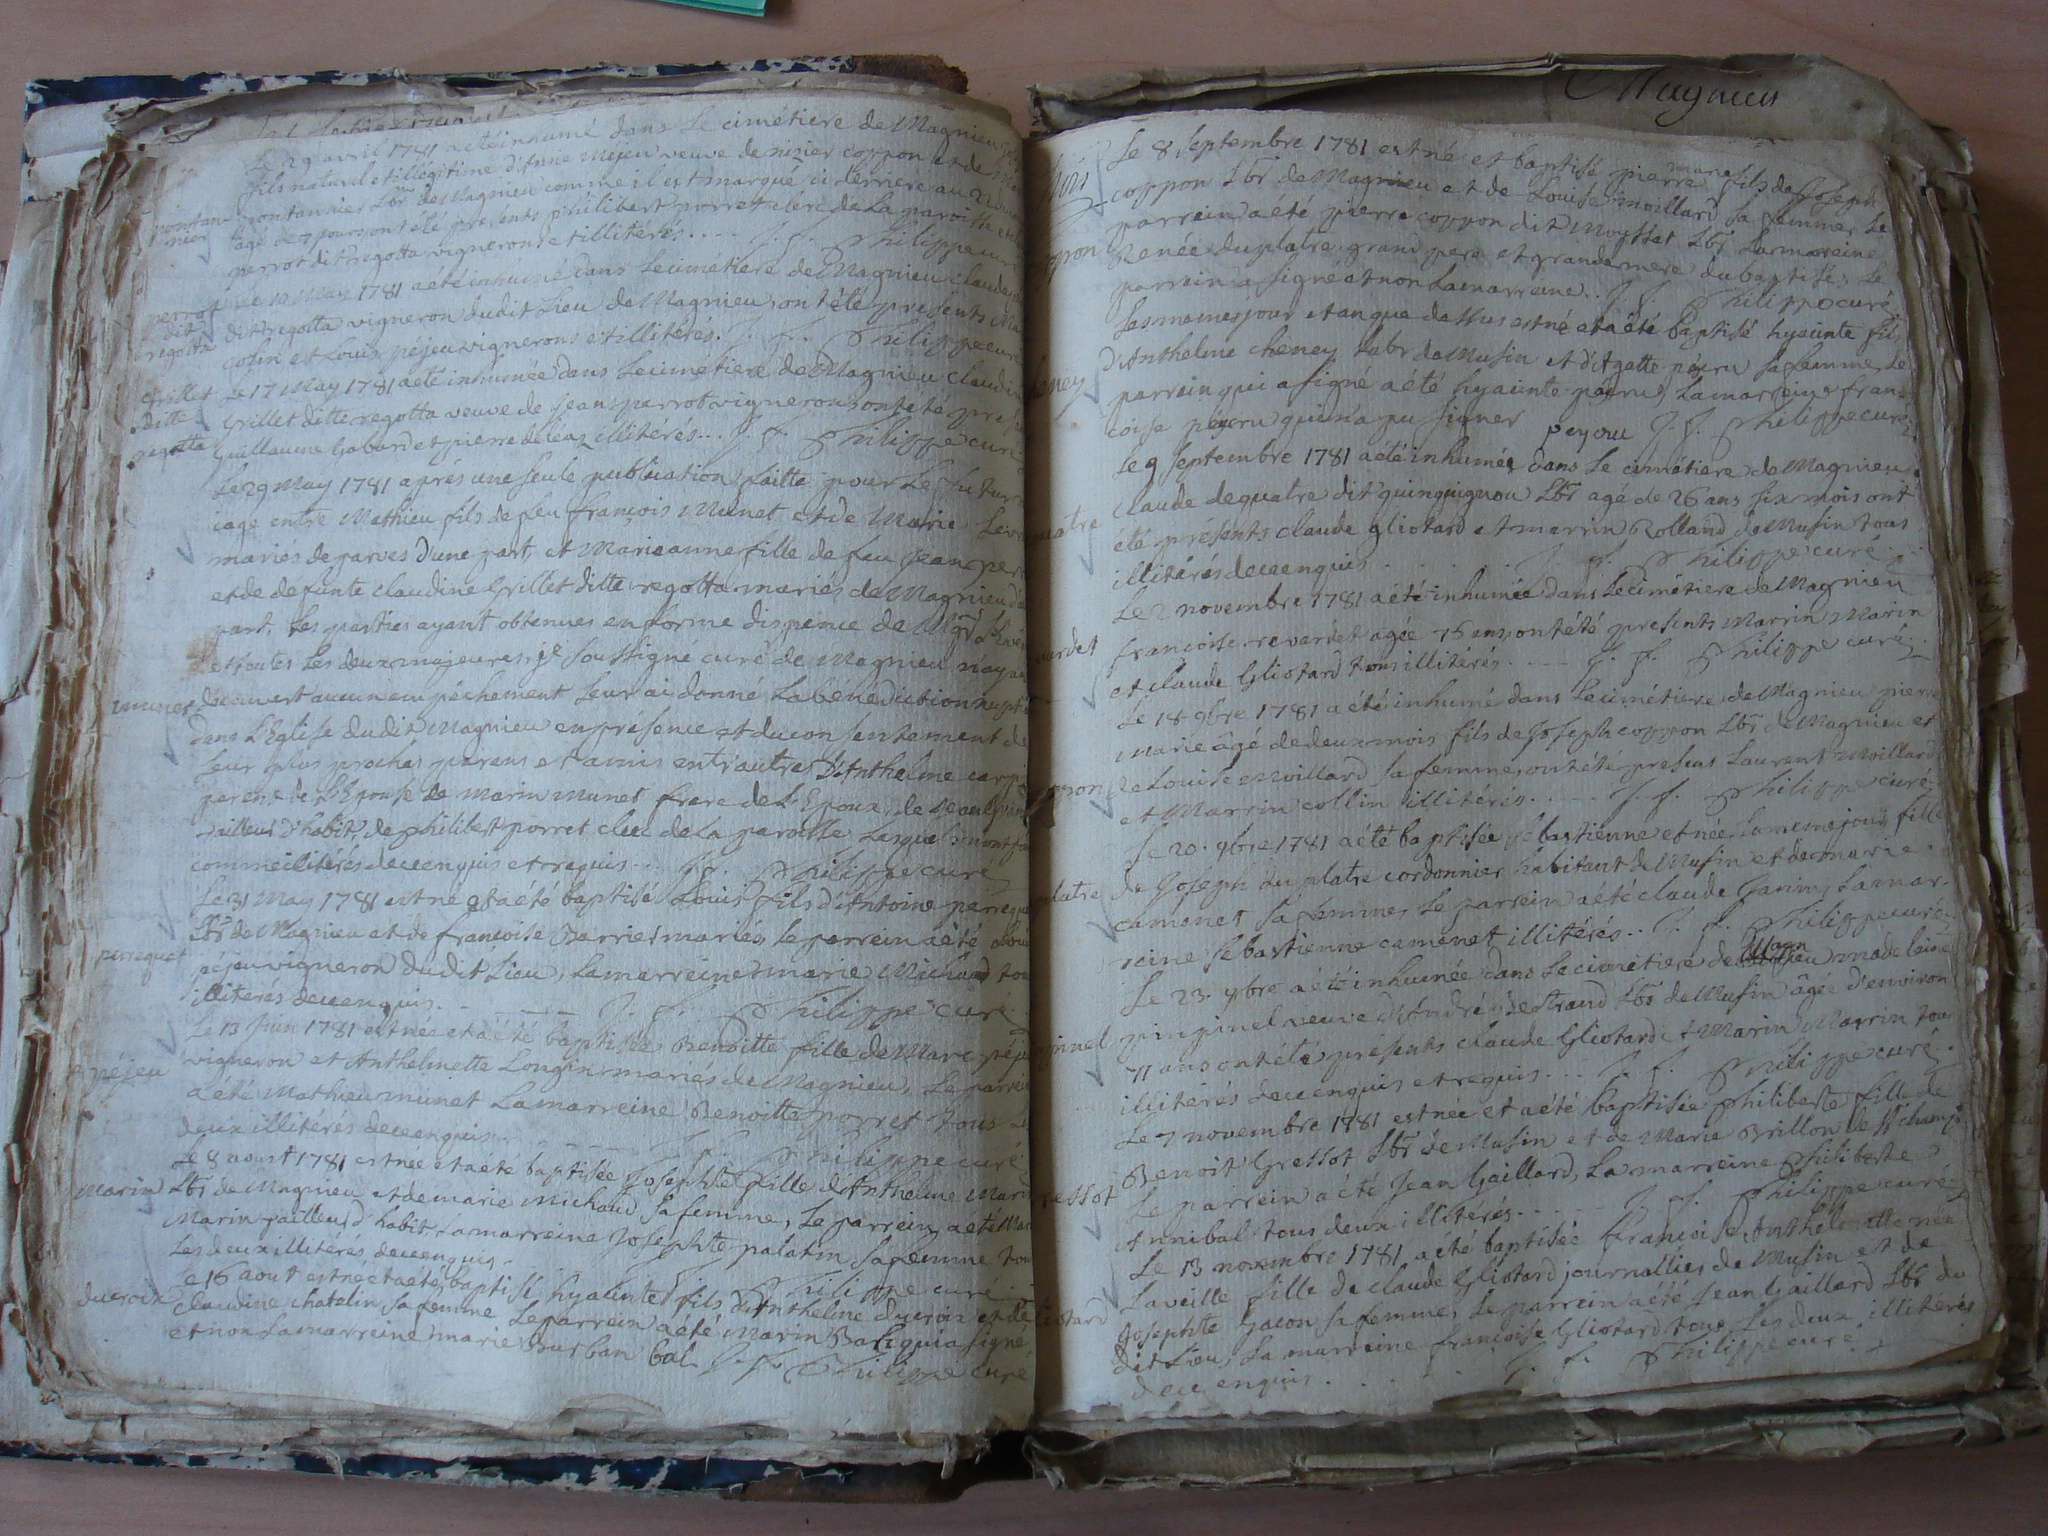 Le 29 avril 1781 a été inhumé dans Le cimétiere de Magnieu
fils naturel et illégitime d'Anne Méjeu veuve de nizier coppon et de
pontannier Lbr de Magnieu comme il est marqué ci derriere au 22
agé de 7 jours ont été presents philibert porret clerc de La paroisse et
perrot dit regotta vignerons et illiterés.... J. f. Philippe curé
Le 10 May 1781 a été inhumé dans Le cimétiere de Magnieu claude
perrot
dit
regotta
dit regotta vigneron dudit Lieu de Magnieu, ont été presents
colin et Louis péjeu vignerons et illiterés. J. f. Philippe curé
Grillet
ditte
regotta
Le 17 May 1781 a été inhumée dans Le cimétiere de Magnieu claudine
Grillet ditte regotta veuve de Jean perrot vigneron ont été
guillaume Gabard et pierre deleaz illitérés... J. f. Philippe curé
Le 29 May 1781 aprés une seule publication faitte pour Le futur
iage entre Mathieu fils de feu françois Munet et de Marie
mariés de parves d'une part, et Marie anne fille de feu Jean
et de defunte claudine Grillet ditte regotta mariés de Magnieu
part. Les parties ayant obtenues en forme dispence de
et toutes Les deux majeures, je soussigné curé de Magnieu n'ayant
munet
découvert aucun empéchement Leur ai donné La bénédiction
dans L'Eglise dudit Magnieu en presence et du consentement de
Leur plus prochés parens et amis entr'autres d'Anthelme
parent de L'Epouse de Marin Munet frere de L'Epoux, de
tailleur d'habit, de philibert porret clerc de La paroisse Lesquels n'ont
comme illitérés de ce enquis et requis... J. f. Philippe curé
Le 31 May 1781 est né et a été baptisé Louis fils d'Antoine
perreques
Lbr de Magnieu et de françoise Barrier mariés, le parrein a été Louis
péjeu vigneron dudit Lieu, La marreine marie Michaud
illiterés de ce enquis. J. f. Philippe curé
Le 13 Juin 1781 est née et a été baptisée Benoitte fille de Marc
péjeu
vigneron et Anthelmette Longin mariés de Magnieu, Le parrein
a été Mathieu munet La marreine Benoitte porret tous
deux illitérés de ce enquis. J. f. Philippe curé
Le 8 aoust 1781 est née et a été baptisée Josephte fille d'Anthelme
Marin
Lbr de Magnieu et de marie Michaud sa femme, Le parrein a été
Marin tailleur d'habit, La marreine Josephte palatin sa femme
Les deux illitérés de ce enquis. Philippe curé
Le 16 aout est né et a été baptisé hyacinte fils d'Anthelme ducroix et de
ducroix
claudine chatelin sa femme Le parrein a été Marin Bal qui a signé
et non La marreine marie Burban bal J. f. Philippe curé
Magnieu
Le 8 Septembre 1781 est né et baptisé pierre marie fils de Joseph
coppon Lbr de Magnieu et de Louise moillard sa femme, Le
parrein a été pierre coppon dit Moysset Lbr La marreine
Renée duplatre grand pere et grande mere du baptisé, Le
parrein a signé et non La marreine.. J. f. Philippe curé
Les memes jour et an que dessus est né et a été baptisé hyacinte fils
d'Anthelme cheney Labr de Musin et d'Agatte péjeru sa femme, Le
parrein qui a signé a été hyacinte péjeru, La marreine fran-
coise péjeru qui n'a pu signer peyoru J. f. Philippe curé
Le 9 Septembre 1781 a été inhumée dans Le cimétiere de Magnieu
claude dequatre dit quinquignon Lbr agé de 26 ans six mois ont
été présents claude Gliotard et marrin Rolland de Musin tous
illitérés de ce enquis . . . . . J. f. Philippe curé
Le 2 novembre 1781 a été inhumée dans Le cimétiere de Magnieu
françoise revardet agée 76 ans ont été presents Marrin Marin
et claude Gliotard tous illitérés... J. f. Philippe curé
Le 18 9bre 1781 a été inhumé dans Le cimétiere de Magnieu pierre
marie âgé de deux mois fils de Joseph coppon Lbr de Magnieu et
de Louise Moillard sa femme, ont été presens Laurent Moillard
et Marrin collin illitérés.... J. f. Philippe curé
Le 20. 9bre 1781 a été baptisée sébastienne et née Le meme jour fille
de Joseph duplatre cordonnier habitant de Musin et de marie
camonet sa femme, Le parrein a été claude Janin, La mar-
reine sebastienne camonet illitérés.. J. f. Philippe curé
Le 23. 9bre a été inhumée dans Le cimétiere de Magnieu madelaine
pinginel veuve d'André Lestraud Lbr de Musin âgée d'environ
71 ans ont été presents claude Gliotard et Marin Marrin tous
illitérés de ce enquis et requis... J. f. Philippe curé
Le 7 novembre 1781 est née et a été baptisée philiberte fille de
Benoit Gressot Lbr de Musin et de Marie Brillon de St champ
Le parrein a été Jean Gaillard, La marreine philiberte
Annibal tous deux illitérés.... J. f. Philippe curé
Le 13 novembre 1781 a été baptisée francoise Anthelmette née
La veille fille de claude Gliotard journallier de Musin et de
Josephte Gacon sa femme, Le parrein a été Jean Gaillard Lbr du
dit Lieu, La marreine francoise Gliotard tous Les deux illitérés
de ce enquis . . . . J. f. Philippe curé